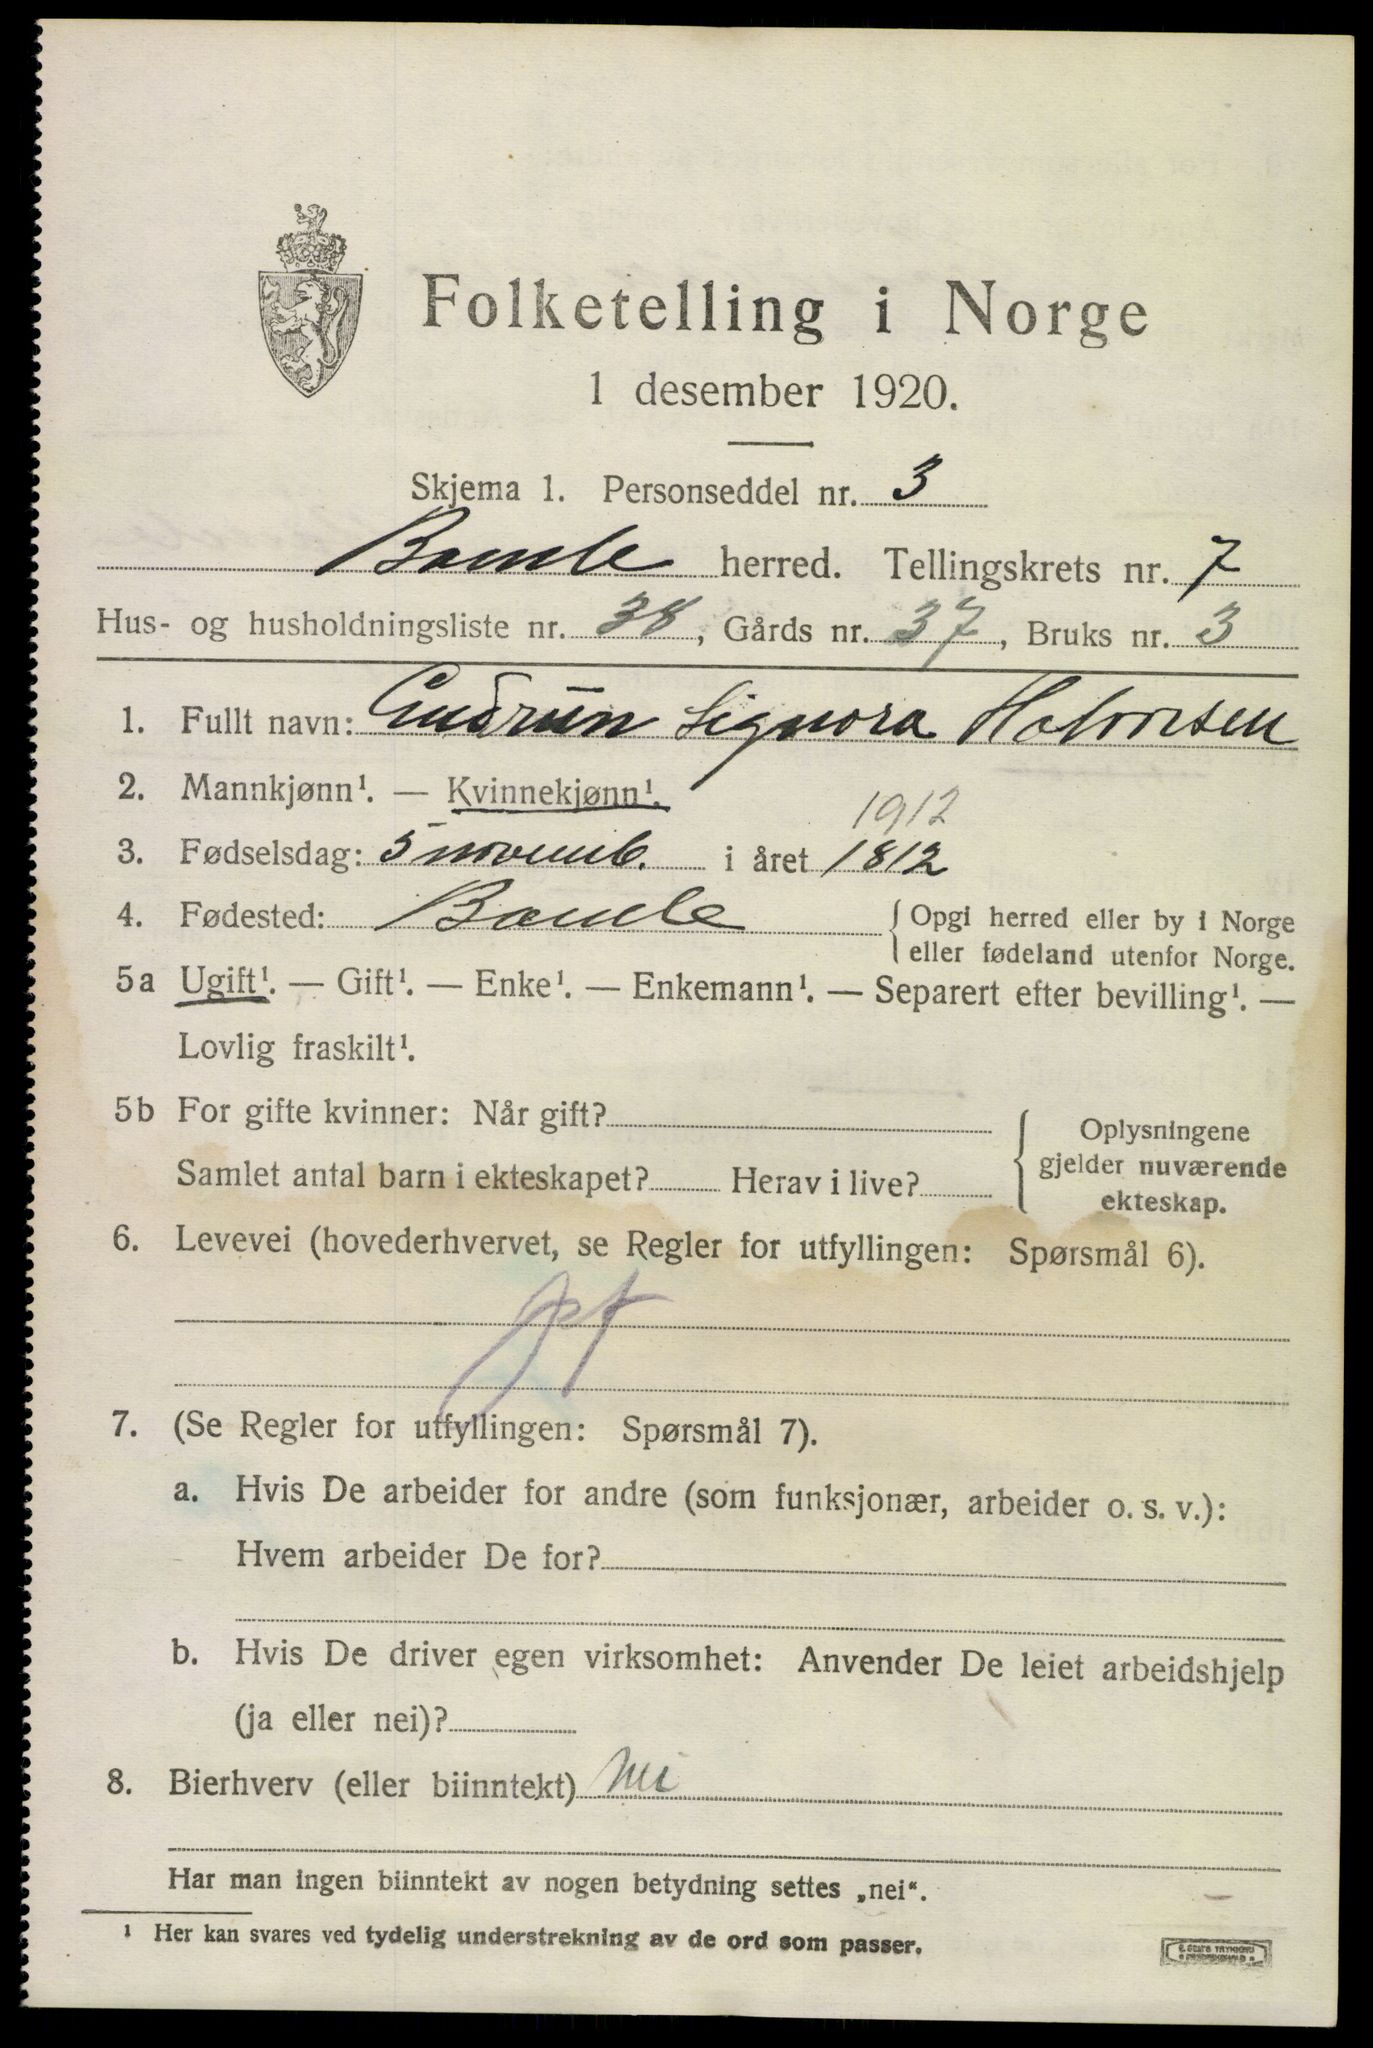 Folketelling i Norge
1 desember 1920.
Skjema 1. Personseddel nr. 3
Bamle herred. Tellingskrets nr. 7
Hus- og husholdningsliste nr. 38, Gårds nr. 37, Bruks nr. 3
1. Fullt navn: Gudrun Signora Halvorsen
2. Mannkjønn¹. — Kvinnekjønn¹.
1912
3. Fødselsdag: 5 novemb. i året 1812
4. Fødested: Bamle { Opgi herred eller by i Norge
eller fødeland utenfor Norge.
5a Ugift¹. — Gift¹. — Enke¹. — Enkemann¹. — Separert efter bevilling¹. —
Lovlig fraskilt¹.
5b For gifte kvinner: Når gift?
Samlet antal barn i ekteskapet? Herav i live?
Oplysningene
gjelder nuværende
ekteskap.
6. Levevei (hovederhvervet, se Regler for utfyllingen: Spørsmål 6).
7. (Se Regler for utfyllingen: Spørsmål 7).
a. Hvis De arbeider for andre (som funksjonær, arbeider o. s. v.):
Hvem arbeider De for?
b. Hvis De driver egen virksomhet: Anvender De leiet arbeidshjelp
(ja eller nei)?
8. Bierhverv (eller biinntekt) Nei
Har man ingen biinntekt av nogen betydning settes „nei“.
¹ Her kan svares ved tydelig understrekning av de ord som passer.